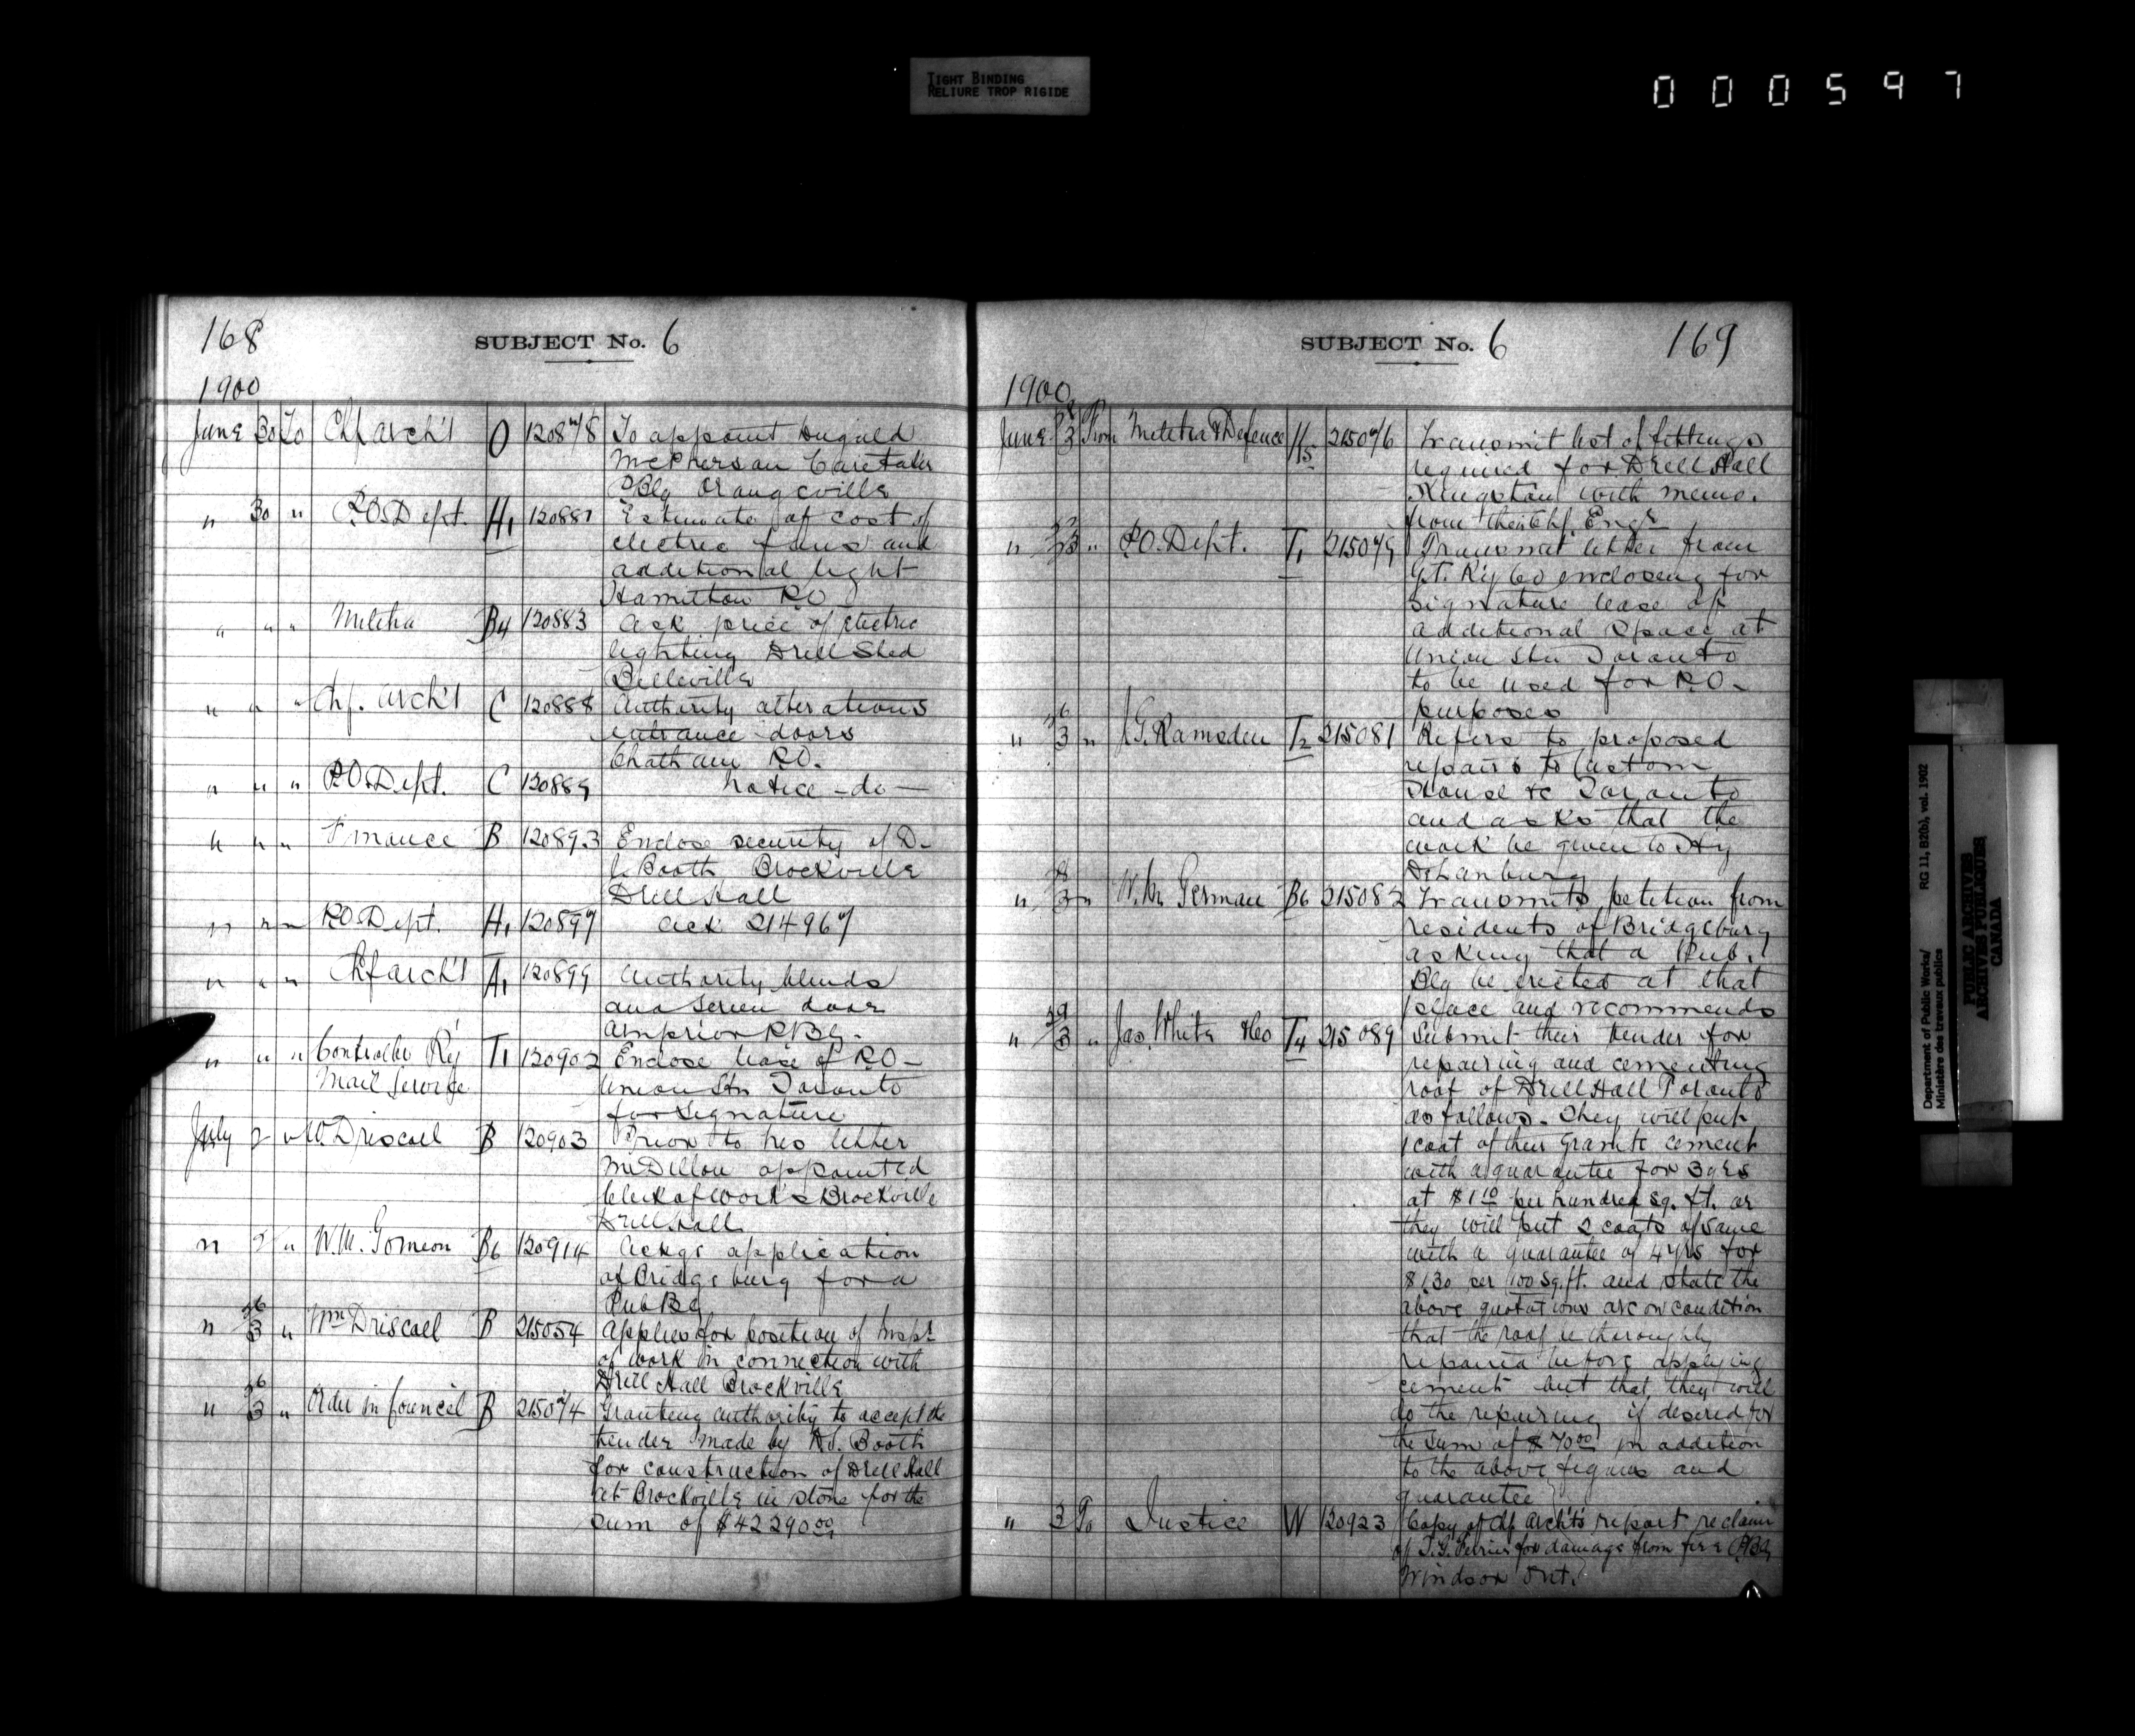 TIGHT BINDING
RELIURE TROP RIGIDE
000597
168
SUBJECT No. 6
1900
June 30 To Chf arch't O 120878 To appoint Dugald
McPherson Caretaker
PBlg Orangeville
" 30 " P.O. Dept. H1 120881 Estimate of cost of
electric fans and
additional light
Hamilton P.O
" " " Militia B4 120883 Ask price of electric
lighting Drill Shed
Belleville
" " " Chf. Arch't C 120888 Authority alterations
entrance doors
Chatham P.O.
" " " P.O. Dept. C 120889 notice - do -
" " " Finance B 120893 Enclose security of D.
S. Booth Brockville
Drill Hall
" " " P.O. Dept. H1 120897 Ack 214967
" " " Chf arch't A1 120899 Authority blinds
and screen door
Arnprior P Blg.
" " " Controller Ry T1 120902 Enclose lease of P.O -
Mail Service Union Stn Toronto
for signature
July 2 " W Driscoll B 120903 Prior to his letter
Mr Dillon appointed
Clerk of works Brockville
Drill Hall
" 2 " W.M. German B6 120914 Ackgs application
of Bridgeburg for a
Pub Blg
" 26/3 " Wm Driscoll B 215054 Applies for position of Inspr
of work in connection with
Drill Hall Brockville
" 26/3 " Order in Council B 215074 Granting authority to accept the
tender made by D.S. Booth
for construction of Drill Hall
at Brockville in stone for the
sum of $42290.00
SUBJECT No. 6 169
1900
June 28/3 From Militia & Defence H15 215076 Transmit list of fittings
required for Drill Hall
Kingston with memo.
from their Chf. Engr
" /3 " P.O. Dept. T1 215079 Transmit letter from
G.T. Ry Co enclosing for
signature lease of
additional space at
Union Stn Toronto
to be used for P.O -
purposes
" 26/3 " J.G. Ramsden T2 215081 Refers to proposed
repairs to Custom
House &c Toronto
and asks that the
work be given to Hy
" 28/3 " W.M. German B6 215082 Transmits petition from
residents of Bridgeburg
asking that a Pub.
Blg be erected at that
place and recommends
" 29/3 " Jas. White & Co T4 215089 Submit their tender for
repairing and cementing
roof of Drill Hall Toronto
as follows. They will put
1 coat of their Granite cement
with a guarantee for 3 yrs
at $1.10 per hundred sq. ft. or
they will put 2 coats of same
with a guarantee of 4 yrs for
$1.30 per 100 sq. ft. and state the
above quotations are on condition
that the roof be thoroughly
repaired before applying
cement but that they will
do the repairing if desired for
the sum of $70.00 in addition
to the above figures and
guarantee
" 3 To Justice W 120923 Copy of Chf Arch't's report re claim
of for damage from fire PBlg
Windsor Ont.
Department of Public Works/
Ministère des travaux publics
RG 11, B2(b), vol. 1902
PUBLIC ARCHIVES
ARCHIVES PUBLIQUES
CANADA